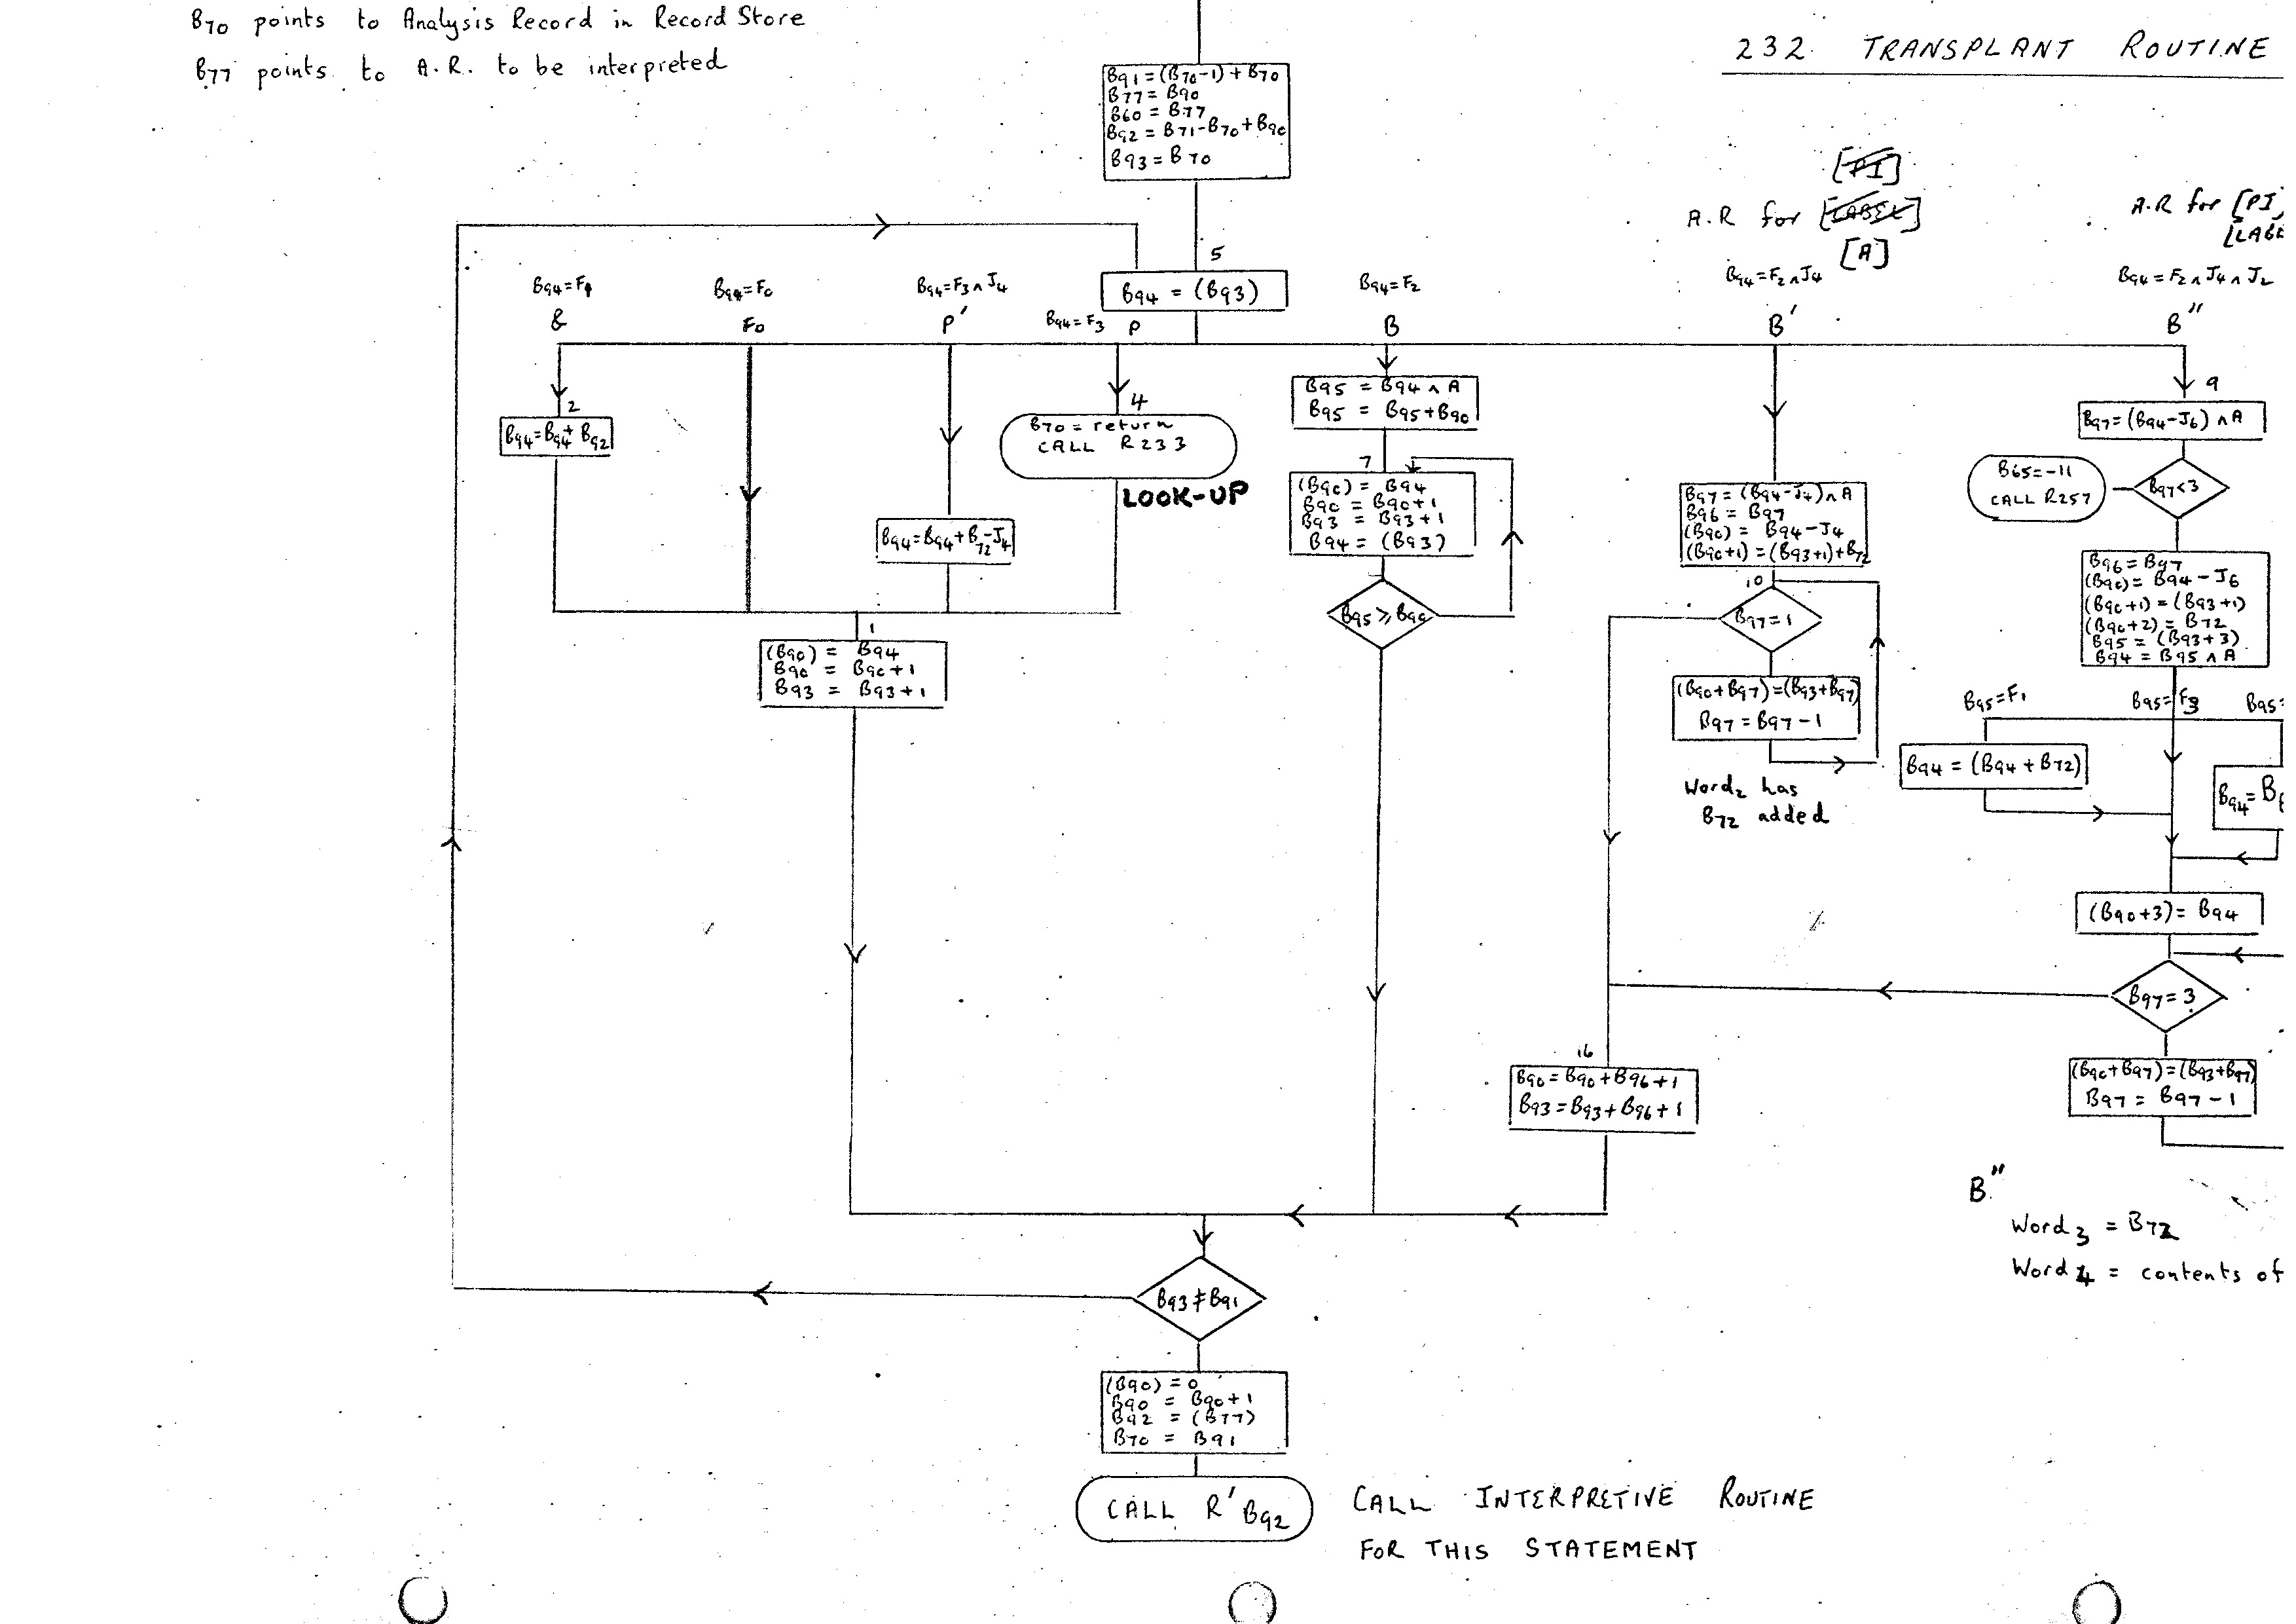 B70 points to Analysis Record in Record Store
B77 points to A.R. to be interpreted
232. TRANSPLANT ROUTINE
B91 = (B70-1) + B70
B77 = B90
B60 = B77
B92 = B71-B70+B90
B93 = B70
[PI]
A.R for [LABEL]
[A]
A.R for [PI,
[LABE
5
B94 = (B93)
B94=F1
&
B94=F0
F0
B94=F3∧J4
P'
B94=F3 P
B94=F2
B
B94=F2∧J4
B'
B94=F2∧J4∧J2
B"
2
B94=B94+B92
B94=B94+B72-J4
4
B70 = return
CALL R233
LOOK-UP
1
(B90) = B94
B90 = B90+1
B93 = B93+1
B95 = B94∧A
B95 = B95+B90
7
(B90) = B94
B90 = B90+1
B93 = B93+1
B94 = (B93)
B95 ≥ B90
B97 = (B94-J4)∧A
B96 = B97
(B90) = B94-J4
(B90+1) = (B93+1)+B72
10
B97=1
(B90+B97)=(B93+B97)
B97 = B97-1
Word2 has
B72 added
9
B97=(B94-J6)∧A
B97<3
B65=-11
CALL R257
B96=B97
(B90)= B94-J6
(B90+1) = (B93+1)
(B90+2) = B72
B95 = (B93+3)
B94 = B95∧A
B95=F1
B95=F3
B95=
B94 = (B94+B72)
B94=B
(B90+3)= B94
B97=3
(B90+B97)=(B93+B97)
B97 = B97-1
16
B90=B90+B96+1
B93=B93+B96+1
B"
Word3 = B72
Word4 = contents of
B93≠B91
(B90) = 0
B90 = B90+1
B92 = (B77)
B70 = B91
CALL R'B92
CALL INTERPRETIVE ROUTINE
FOR THIS STATEMENT